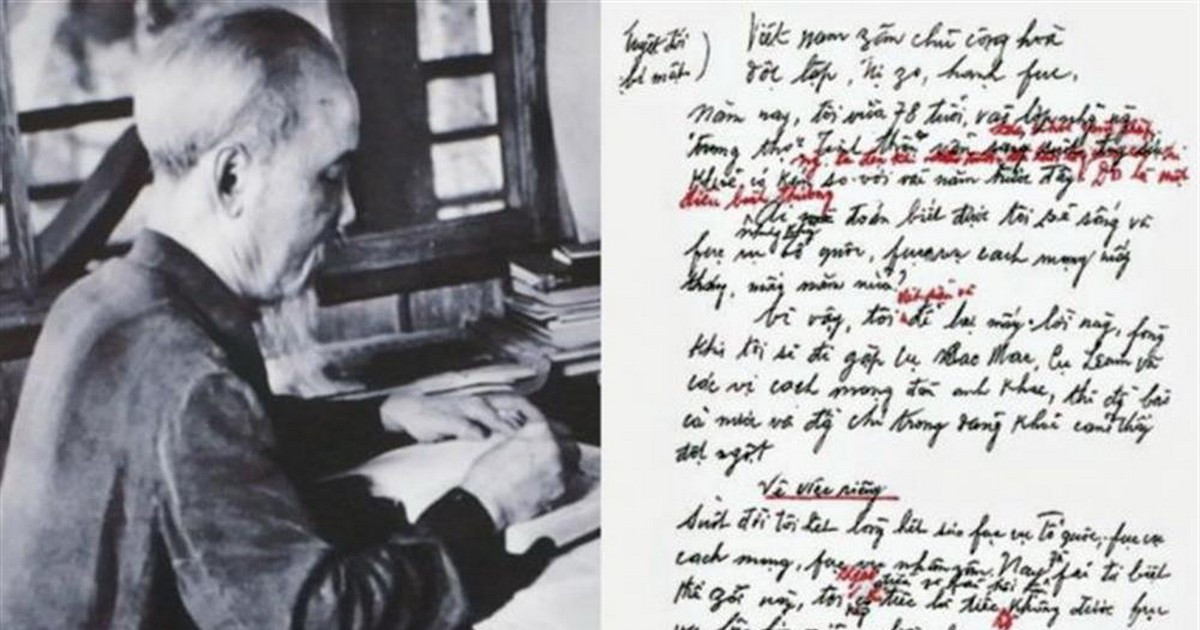 Tuyệt đối
bí mật
Việt nam zân chủ cộng hoà
độc lập, tự zo, hạnh fúc.
Năm nay, tôi vừa 78 tuổi, vào lớp những người
"trung thọ". Tinh thần vẫn sáng suốt, tuy sức
khoẻ có kém so với vài năm trước đây. Đó là một
điều bình thường
Ai đoán biết được tôi sẽ sống và
fục vụ tổ quốc, fục vụ cách mạng mấy
tháng, mấy năm nữa?
Vì vậy, tôi để lại mấy lời này, fòng
khi tôi sẽ đi gặp cụ Các Mác, cụ Lênin và
các vị cách mạng đàn anh khác, thì đồng bào
cả nước và đồng chí trong đảng khỏi cảm thấy
đột ngột
Về việc riêng
Suốt đời tôi hết lòng hết sức fục vụ Tổ quốc, fục vụ
cách mạng, fục vụ nhân zân. Nay fải từ biệt
thế zới này, tôi tiếc là tiếc không được fục